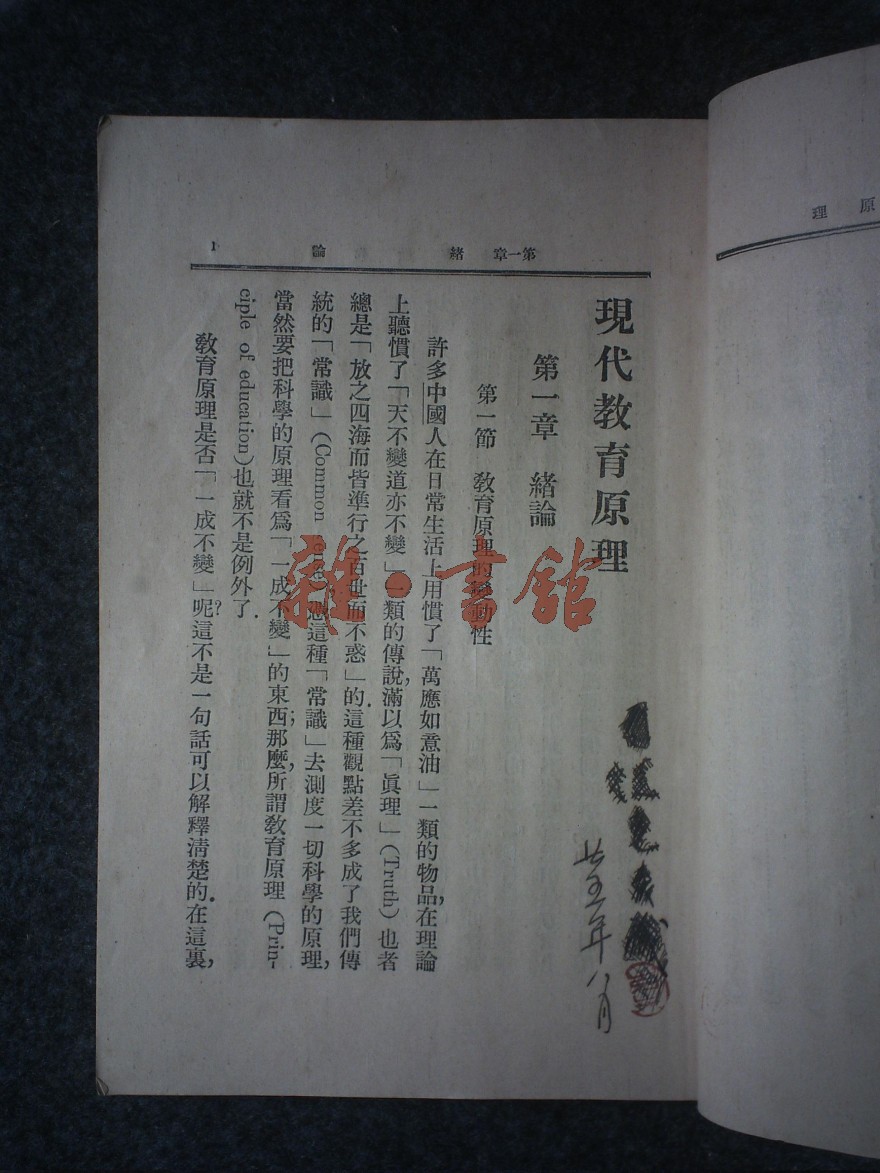 原理
第一章 緒論
1
現代教育原理
第一章 緒論
第一節 教育原理的變動性
許多中國人在日常生活上用慣了「萬應如意油」一類的物品,在理論
上聽慣了「天不變道亦不變」一類的傳說,滿以爲「眞理」(Truth)也者
總是「放之四海而皆準行之百世而不惑」的.這種觀點差不多成了我們傳
統的「常識」(Common 這種「常識」去測度一切科學的原理,
當然要把科學的原理看爲「一成不變」的東西;那麼,所謂教育原理(Prin-
ciple of education)也就不是例外了.
教育原理是否「一成不變」呢?這不是一句話可以解釋清楚的.在這裏,
年八月
雜·書館